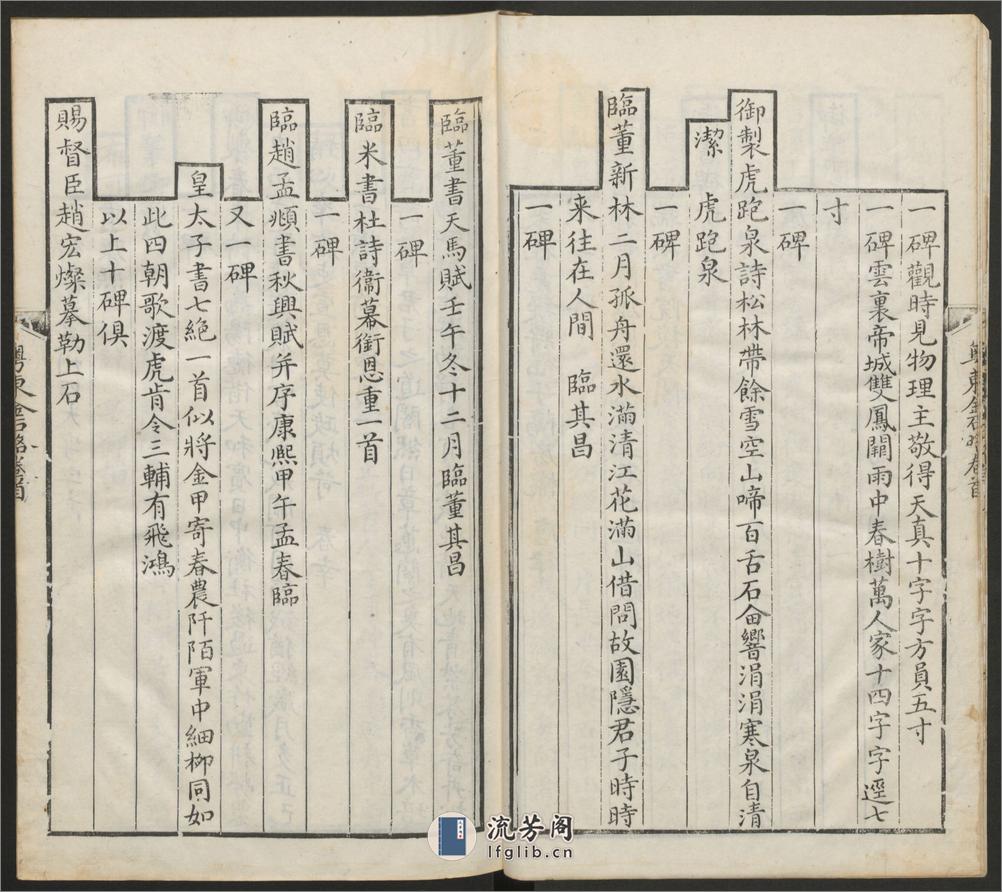 一碑觀時見物理主敬得天真十字字方員五寸
一碑雲裏帝城雙鳳闕雨中春樹萬人家十四字字逕七
寸
一碑
御製虎跑泉詩松林帶餘雪空山啼百舌石甬響涓涓寒泉自清
潔　虎跑泉
一碑
臨董新林二月孤舟還水滿清江花滿山借問故園隱君子時時
来往在人間　臨其昌
一碑
臨董書天馬賦壬午冬十二月臨董其昌
一碑
臨米書杜詩衞幕銜恩重一首
一碑
臨趙孟頫書秋興賦并序康熙甲午孟春臨
又一碑
皇太子書七絕一首似將金甲寄春農阡陌軍中細柳同如
此四朝歌渡虎肯令三輔有飛鴻
以上十碑俱
賜督臣趙宏燦摹勒上石
粵東金石略卷首
粵東金石略卷首
流芳阁
lfglib.cn